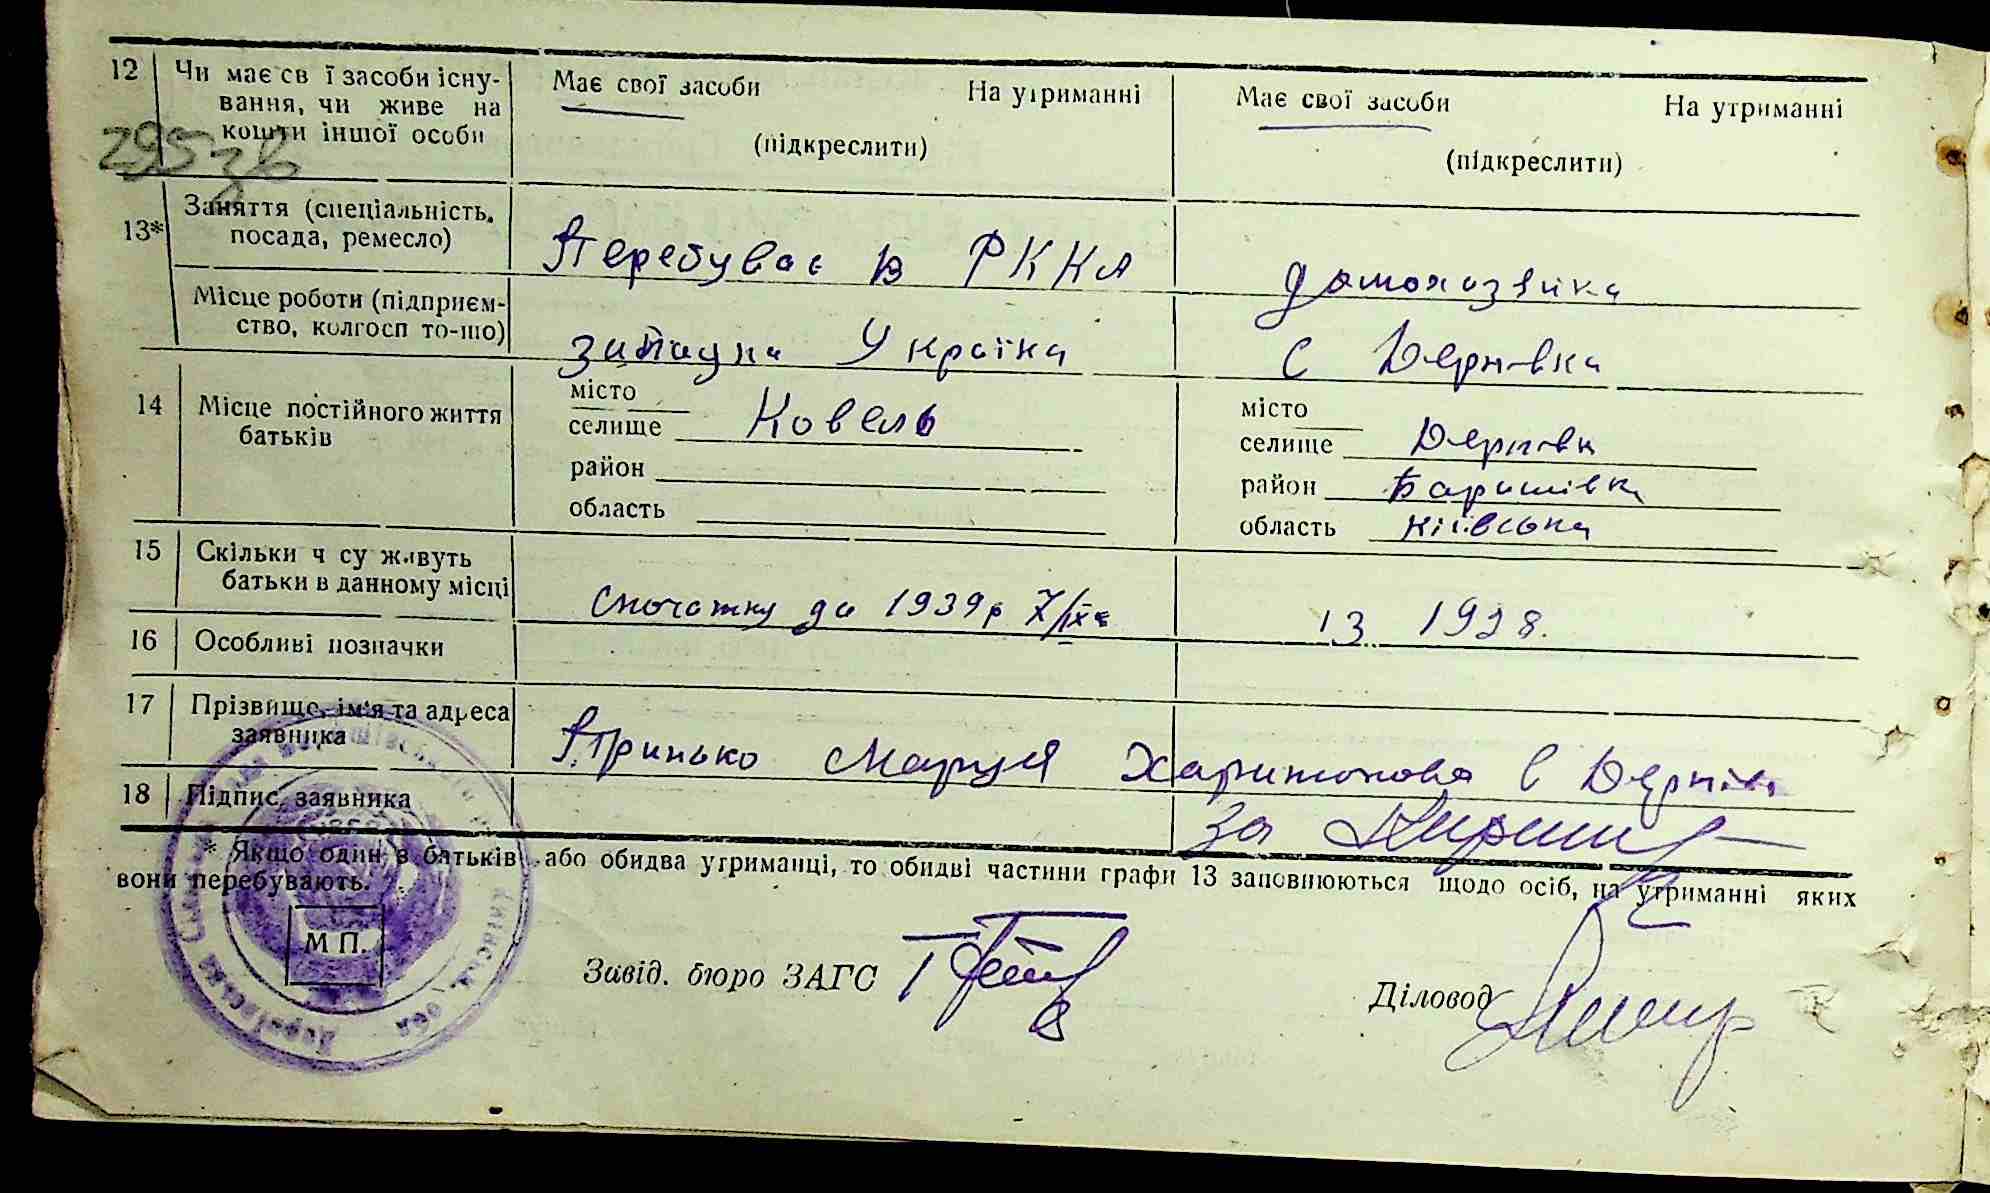 12 Чи має св ї засоби існу-
вання, чи живе на
кошти іншої особи
Має свої засоби На утриманні
(підкреслити)
Має свої засоби На утриманні
(підкреслити)
295 зв
13* Заняття (спеціальність,
посада, ремесло)
Перебуває в РККА
домохазяйка
Місце роботи (підприєм-
ство, колгосп то-що)
западна Україна
С Дернівка
14 Місце постійного життя
батьків
місто
селище Ковель
район
область
місто
селище Дернівка
район Баришівка
область Київська
15 Скільки ч су живуть
батьки в данному місці
Спочатку до 1939р 7/ІХ
13 1938.
16 Особливі позначки
17 Прізвище, ім'я та адреса
заявника
Принько Марія Харитонова С Дернівка
18 Підпис заявника
за
* Якщо один з батьків або обидва утриманці, то обидві частини графи 13 заповнюються щодо осіб, на утриманні яких
вони перебувають.
М П.
Завід. бюро ЗАГС
Діловод